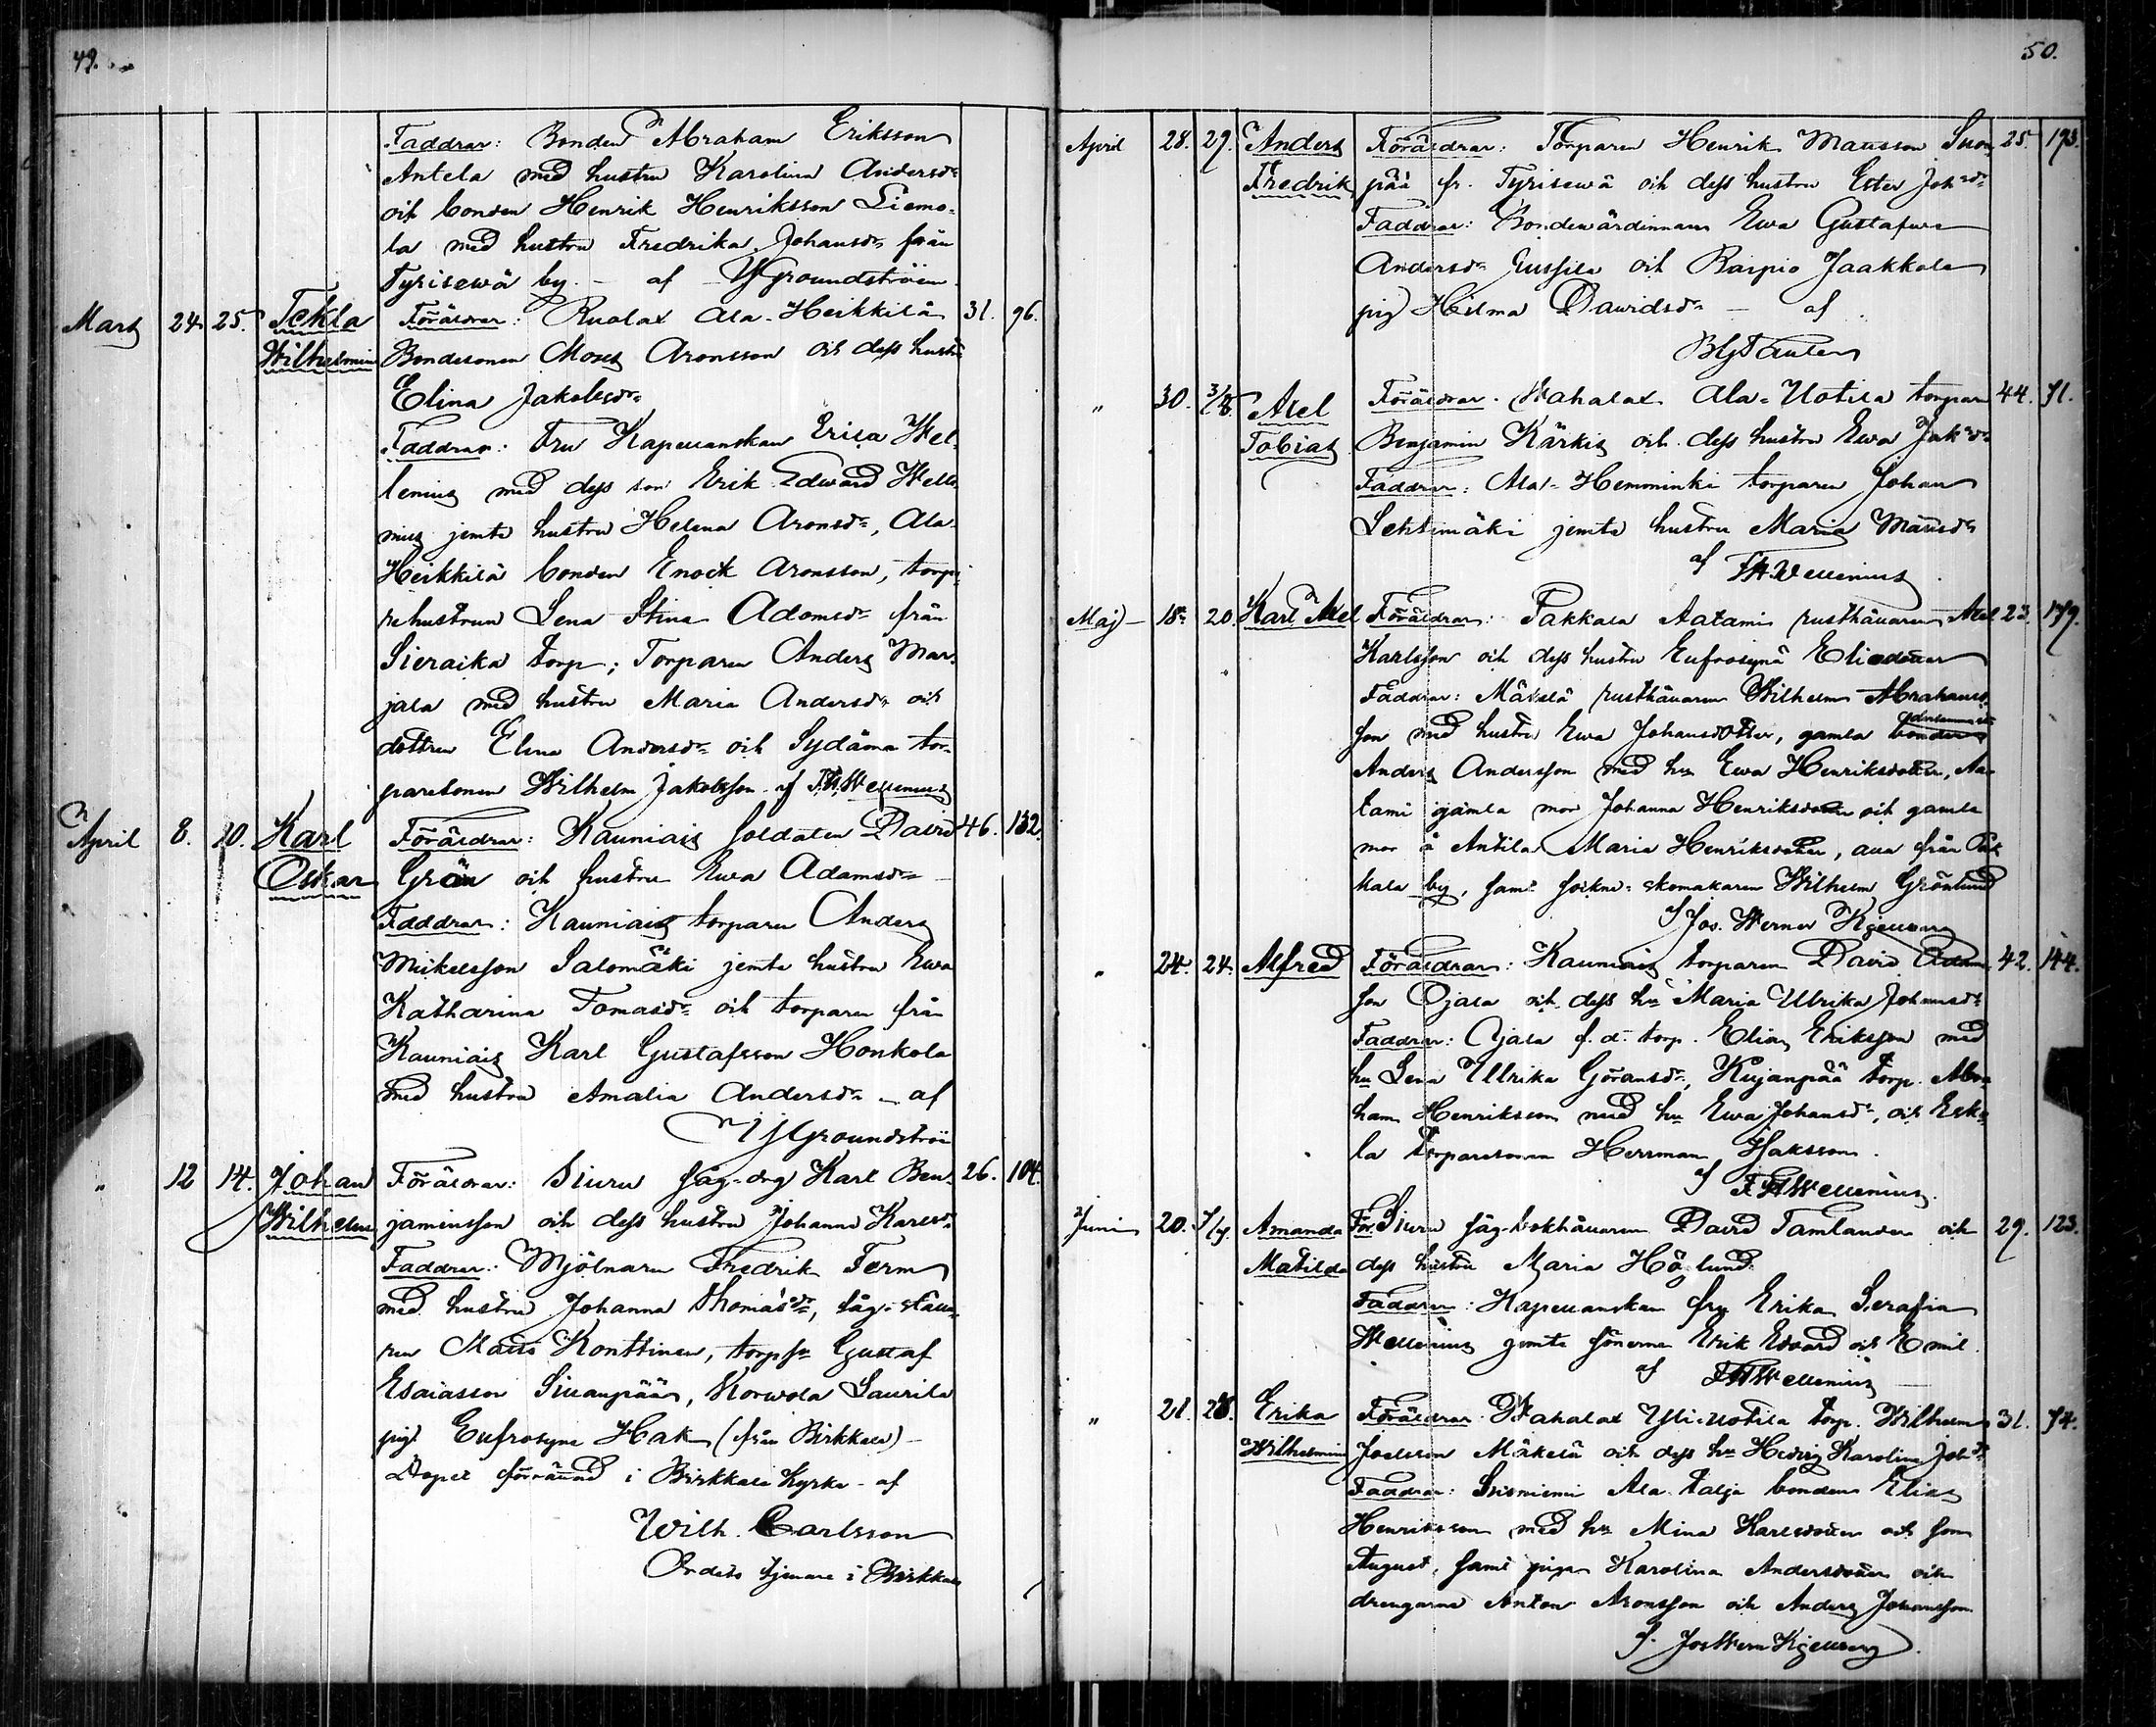 49.
Faddrar: Bonden Abraham Eriksson
Antela med hustru Karolina Andersdr
och bonden Henrik Henriksson Liemo-
la med hustru Fredrika Johansdr från
Tyrisewä by. - af Groundström
Mars 24. 25. Tekla Föräldrar: Ruolax Ala-Heikkilä 31. 96.
Wilhelmina Bondesonen Moses Aronsson och dess hustru
Elina Jakobsdr
Faddrar: Fru Kapellanskan Erica Wel-
lenius med dess son Erik Edward Welle-
nius jemte hustru Helena Aronsdr, Ala-
Heikkilä bonden Enock Aronsson, torpa-
rehustrun Lena Stina Adamsdr från
Sieraika torp; Torparen Anders Mar-
jala med hustru Maria Andersdr och
dottren Elina Andersdr och Sydäma tor-
paresonen Wilhelm Jakobsson af F.W. Wellenius
April 8. 10. Karl Föräldrar: Kauniais Soldaten David 46. 132.
Oskar Grön och hustru Ewa Adamsdr
Faddrar: Kauniais torparen Anders
Mikelsson Salomäki jemte hustru Ewa
Katharina Tomasdr och torparen från
Kauniais Karl Gustafsson Honkola
med hustru Amalia Andersdr - af
Groundström
" 12 14. Johan Föräldrar: Siuru Såg-drg Karl Ben- 26. 104.
Wilhelm jaminsson och dess hustru Johanna Karlsdr
Faddrar: Mjölnaren Fredrik Ferm
med hustru Johanna Thomasdr, såg-
ren Matts Konttinen, torpsn Gustaf
Esaiasson Siuanpää, Korwola Laurila
pig. Eufrosyne Hak (från Birkkala)
Döpet förrättad i Birkkala Kyrka - af
Wilh. Carlsson
Ordets tjenare i Birkkala
50.
April 28. 29. Anders Föräldrar: Torparen Henrik Mattsson Suon- 25. 193.
Fredrik pää fr. Tyrisewä och dess hustru Ester Johsdr
Faddrar: Bondewärdinnan Ewa Gustafwa
Andersdr Jussila och Raipio Jaakkola
pig Hilma Davidsdr - af
" 30. Axel Föräldrar: Wahalax Ala-Uotila torparen 44. 71.
Tobias Benjamin Kärki och dess hustru Ewa Jaksdr
Faddrar: Ala-Hemminki torparen Johan
Lehtimäki jemte hustru Maria Mattsdr
af F.W. Wellenius
Maj 18. 20. Karl Axel Föräldrar: Pakkala Aatami rusthållaren Axel 23. 179.
Karlsson och dess hustru Eufrosyna Eliedotter
Faddrar: Mäkelä rusthållaren Wilhelm Abrahams-
son med hustru Ewa Johansdotter, gamla bonden
Anders Andersson med hu Ewa Henriksdotter, Aa-
tami gamla mor Johanna Henriksdotter och gamla
mor å Antila Maria Henriksdotter, alla från Pak-
kala by, samt sockne-skomakaren Wilhelm Grönlund
af Jos. Werner Kjellberg
" 24. 24. Alfred Föräldrar: Kauniais torparen David Adam- 42. 144.
son Ojala och dess hu Maria Ulrika Johansdr
Faddrar: Ojala f.d. torp. Elias Eriksson med
hu Lena Ullrika Göransdr, Kujanpää torp. Abra-
ham Henriksson med hu Ewa Johansdr, och Erk-
la Torparesonen Herrman Isaksson.
af F.W. Wellenius
Juni 20. Amanda För. Siuru Såg-bokhållaren David Tamlander och 29. 123.
Matilda dess hustru Maria Höglund.
Faddrar: Kapellanskan fru Erika Serafia
Wellenius jemte sönerna Erik Edvard och Emil
af F.W. Wellenius
" 21. Erika Föräldrar: Wahalax Yli-Uotila torp. Wilhelm 31. 74.
Wilhelmina Joelsson Mäkelä och dess hu Hedvig Karolina Johdr
Faddrar: Sisoniemi Ala-Talja bonden Elias
Henriksson med hu Mina Karlsdotter och son
August, samt pigan Karolina Andersdotter och
drengarne Anton Aronsson och Anders Johansson
af Jos Wern Kjellberg